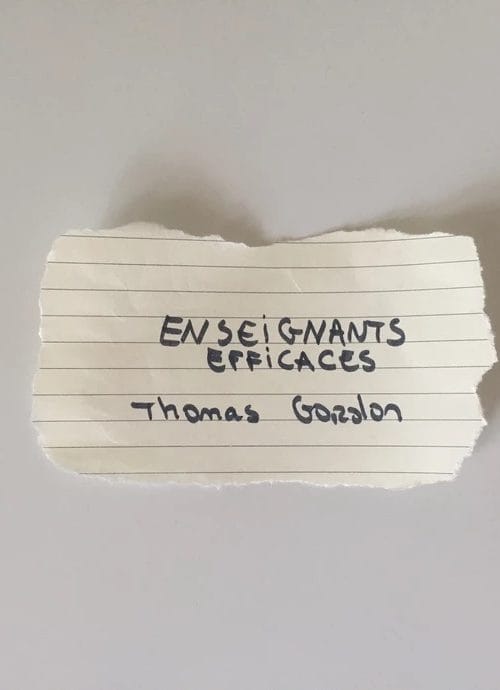 ENSEiGNANTS
EFFiCACES
Thomas Gordon